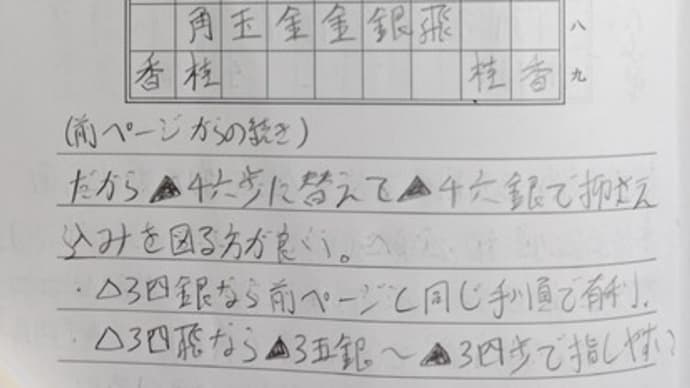 角玉金金銀飛 八
香桂 桂香 九
(前ページからの続き)
だから▲4六歩に替えて▲4六銀で抑さえ
込みを図る方が良い。
・△3四銀なら前ページと同じ手順で有利.
・△3四飛なら▲3五銀〜▲3四歩で指しやすい